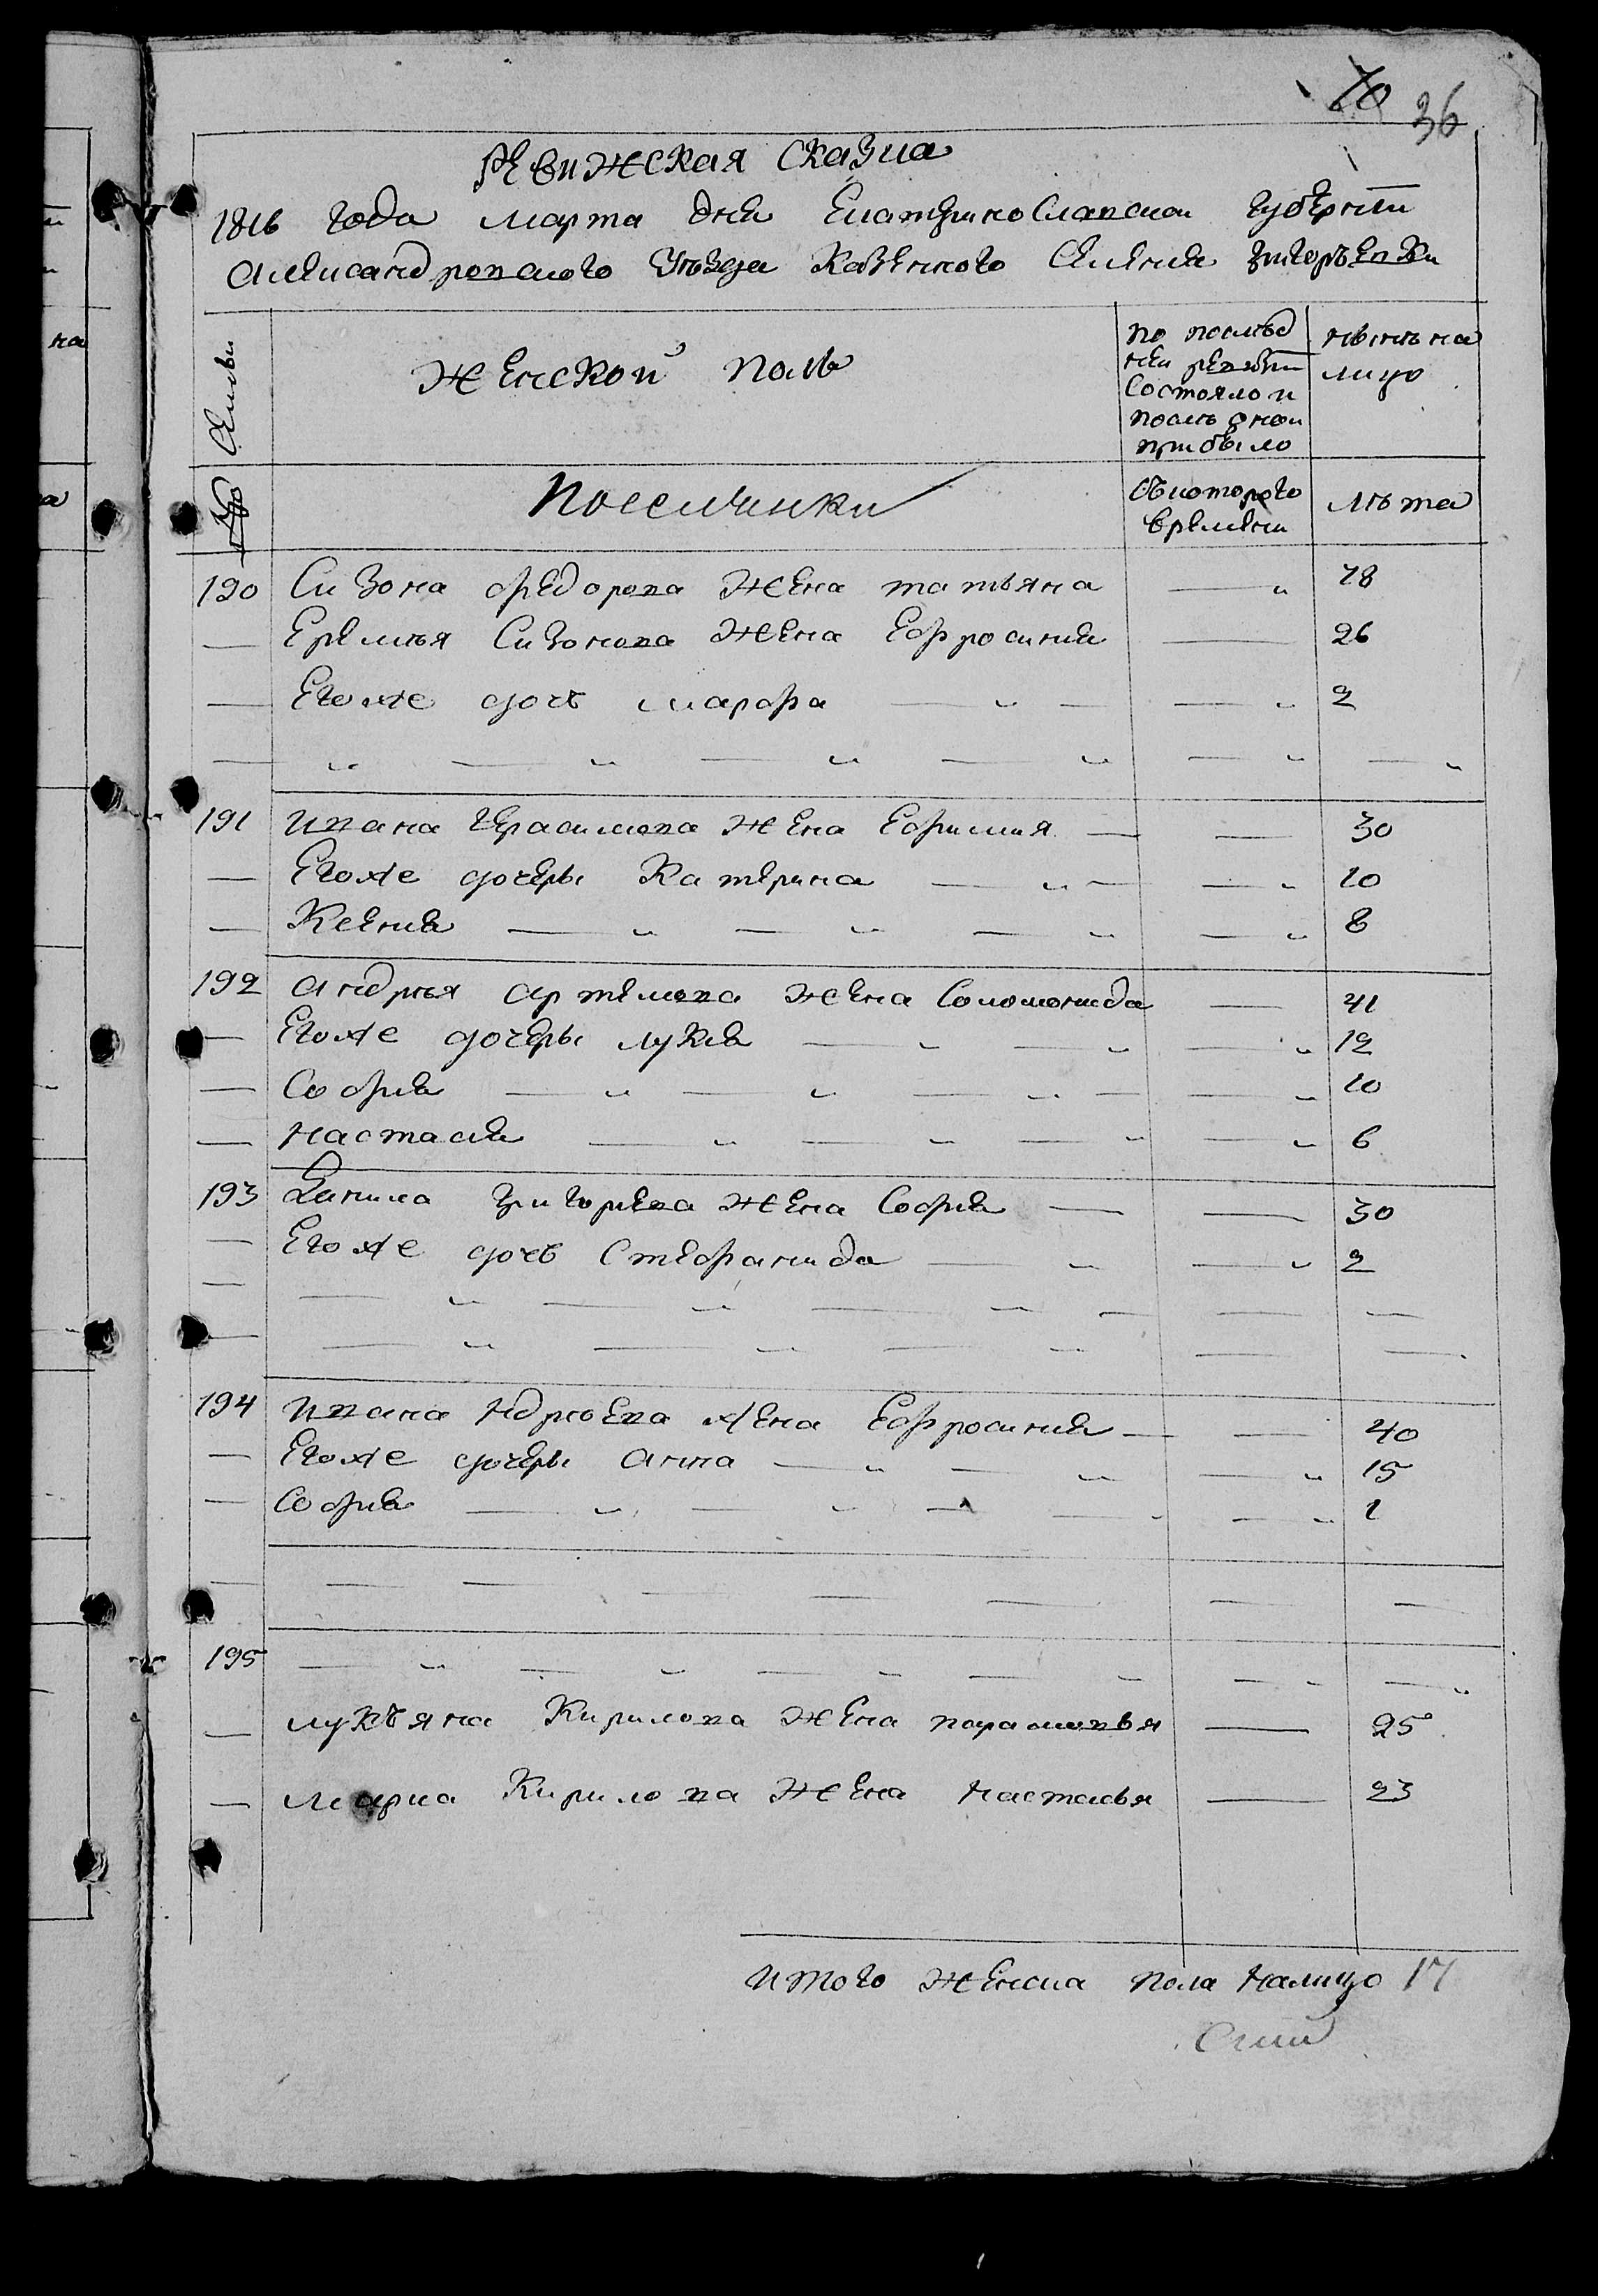 70 36
Ревижская Сказка
1816 года марта дня Екатеринославской губернии
Александровского уезда Казенного Селения Григорьевки
Семьи
Женской полъ
по послѣд
ней ревизии
состояло и
послѣ оной
прибыло
нынѣ на
лицо
№
Поселянки
Съ которого
времени
лѣта
190 Сизона Федорова жена татьяна — " 78
— Еремѣя Сизонова жена Ефросиния — 26
— Егоже дочь марфа — " — — " 2
— " — " — " — " — " — "
191 Ивана Герасимова жена Ефимия — — 30
— Егоже дочери Катерина — " — — " 10
— Ксения — " — " — " — " 8
192 Андрѣя Артемова жена Соломонида — 41
— Егоже дочери лукия — " — " — " 12
— София — " — " — " — — " 10
— Настасия — " — " — " — " 6
193 Данила Григориева жена София — — 30
— Егоже дочь Стефанида — " — " 2
— — " — " — " — — —
— — " — " — " — —
194 Ивана Ндрѣева жена Ефросиния — — 40
— Егоже дочери Анна — " — " — " 15
— София — " — " — — " — " 1
— — — — — — — —
195 — " — " — " — " — " — "
— лукъяна Кирилова жена парасковья — 25
— Марка Кирилова жена Настасья — 23
Итого женска пола налицо 17